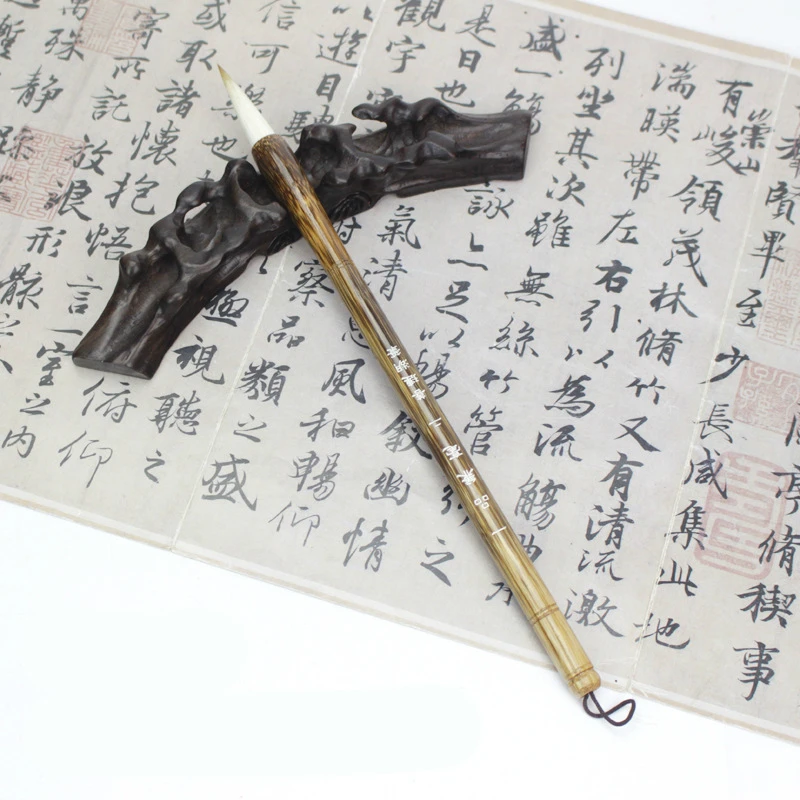 亭脩禊事
賢畢至少長咸集此地
有崇山峻領茂林脩竹又有清流激
湍暎帶左右引以為流觴曲
列坐其次雖無絲竹管之
盛一觴詠亦足以暢敘幽情
是日也氣清惠風和暢仰
觀宇察品類之盛
以遊目騁極視聽之
信可樂也俯仰
或取諸懷抱悟言一室之內
寄所託放浪形骸之
萬殊靜躁
善璉湖筆